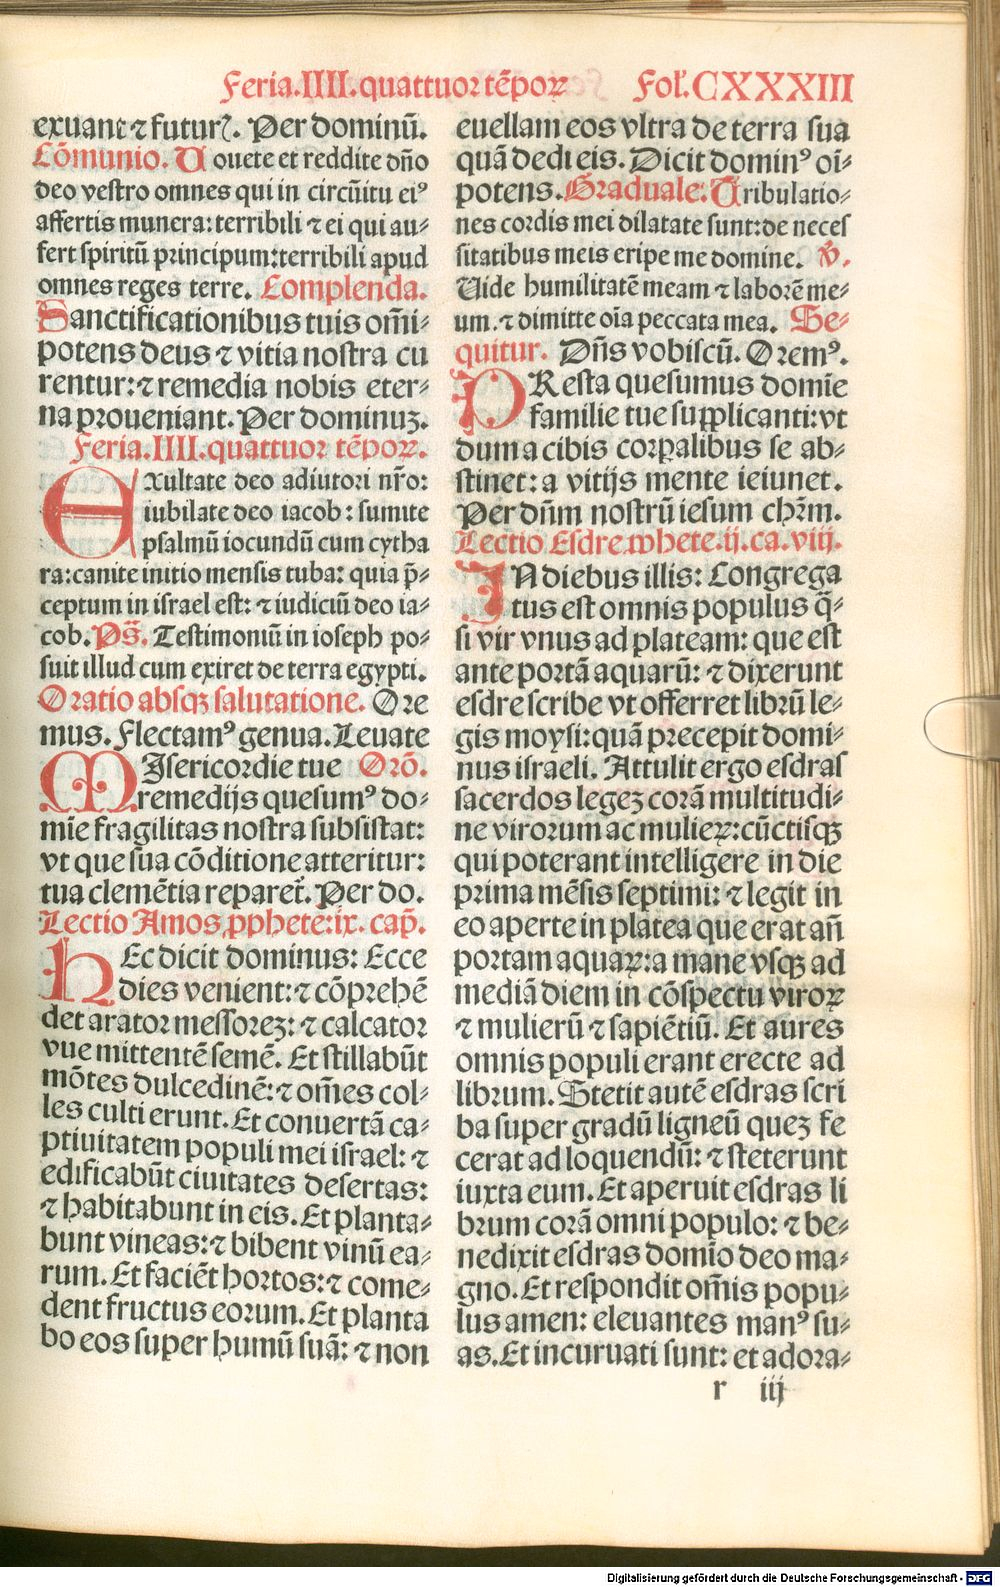 Feria.IIII.quattuor tẽpoꝝ Fol'.CXXXIII
exuant ⁊ futur?. Per dominũ.
Cõmunio. Uouete et reddite dño
deo vestro omnes qui in circũitu eiꝰ
affertis munera: terribili ⁊ ei qui au⸗
fert spiritũ principum:terribili apud
omnes reges terre. Complenda.
Sanctificationibus tuis om̃i⸗
potens deus ⁊ vitia nostra cu
rentur:⁊ remedia nobis eter⸗
na proueniant. Per dominuꝫ.
Feria.IIII.quattuor tẽpoꝝ.
Exultate deo adiutori nr̃o:
iubilate deo iacob: sumite
psalmũ iocundũ cum cytha
ra:canite initio mensis tuba: quia p̃⸗
ceptum in israel est: ⁊ iudiciũ deo ia⸗
cob. Ps̃. Testimoniũ in ioseph po⸗
suit illud cum exiret de terra egypti.
Oratio absqꝫ salutatione. Ore
mus. Flectamꝰ genua. Leuate
MIsericordie tue Orõ.
remedijs quesumꝰ do⸗
mĩe fragilitas nostra subsistat:
vt que sua cõditione atteritur:
tua clemẽtia reparet̃. Per do.
Lectio Amos ꝓphete:ix. cap̃.
HEc dicit dominus: Ecce
dies venient:⁊ cõprehẽ
det arator messoreꝫ: ⁊ calcator
vue mittentẽ semẽ. Et stillabũt
mõtes dulcedinẽ:⁊ om̃es col⸗
les culti erunt. Et conuertã ca⸗
ptiuitatem populi mei israel: ⁊
edificabũt ciuitates desertas:
⁊ habitabunt in eis. Et planta⸗
bunt vineas:⁊ bibent vinũ ea⸗
rum. Et faciẽt hortos:⁊ come⸗
dent fructus eorum. Et planta
bo eos super humũ suã: ⁊ non
euellam eos vltra de terra sua
quã dedi eis. Dicit dominꝰ oĩ⸗
potens. Graduale: Tribulatio⸗
nes cordis mei dilatate sunt:de neces
sitatibus meis eripe me domine. ℣.
Uide humilitatẽ meam ⁊ laborẽ me⸗
um. ⁊ dimitte oĩa peccata mea. Se⸗
quitur. Dñs vobiscũ. Oremꝰ.
PResta quesumus domĩe
familie tue supplicanti: vt
dum a cibis corꝑalibus se ab⸗
stinet: a vitijs mente ieiunet.
Per dñm nostrũ iesum chr̃m.
Lectio Esdre ꝓphete.ij.ca.viij.
INdiebus illis: Congrega
tus est omnis populus q̃⸗
si vir vnus ad plateam: que est
ante portã aquarũ: ⁊ dixerunt
esdre scribe vt offerret librũ le⸗
gis moysi:quã precepit domi⸗
nus israeli. Attulit ergo esdras
sacerdos legeꝫ corã multitudi⸗
ne virorum ac mulieꝝ:cũctisqꝫ
qui poterant intelligere in die
prima mẽsis septimi: ⁊ legit in
eo aperte in platea que erat añ
portam aquaꝝ:a mane vsqꝫ ad
mediã diem in cõspectu viroꝝ
⁊ mulierũ ⁊ sapiẽtiũ. Et aures
omnis populi erant erecte ad
librum. Stetit autẽ esdras scri
ba super gradũ ligneũ queꝫ fe
cerat ad loquendũ: ⁊ steterunt
iuxta eum. Et aperuit esdras li
brum corã omni populo: ⁊ be⸗
nedixit esdras domĩo deo ma⸗
gno. Et respondit om̃is popu⸗
lus amen: eleuantes manꝰ su⸗
as. Et incuruati sunt: et adora⸗
r iij
Digitalisierung gefördert durch die Deutsche Forschungsgemeinschaft - DFG